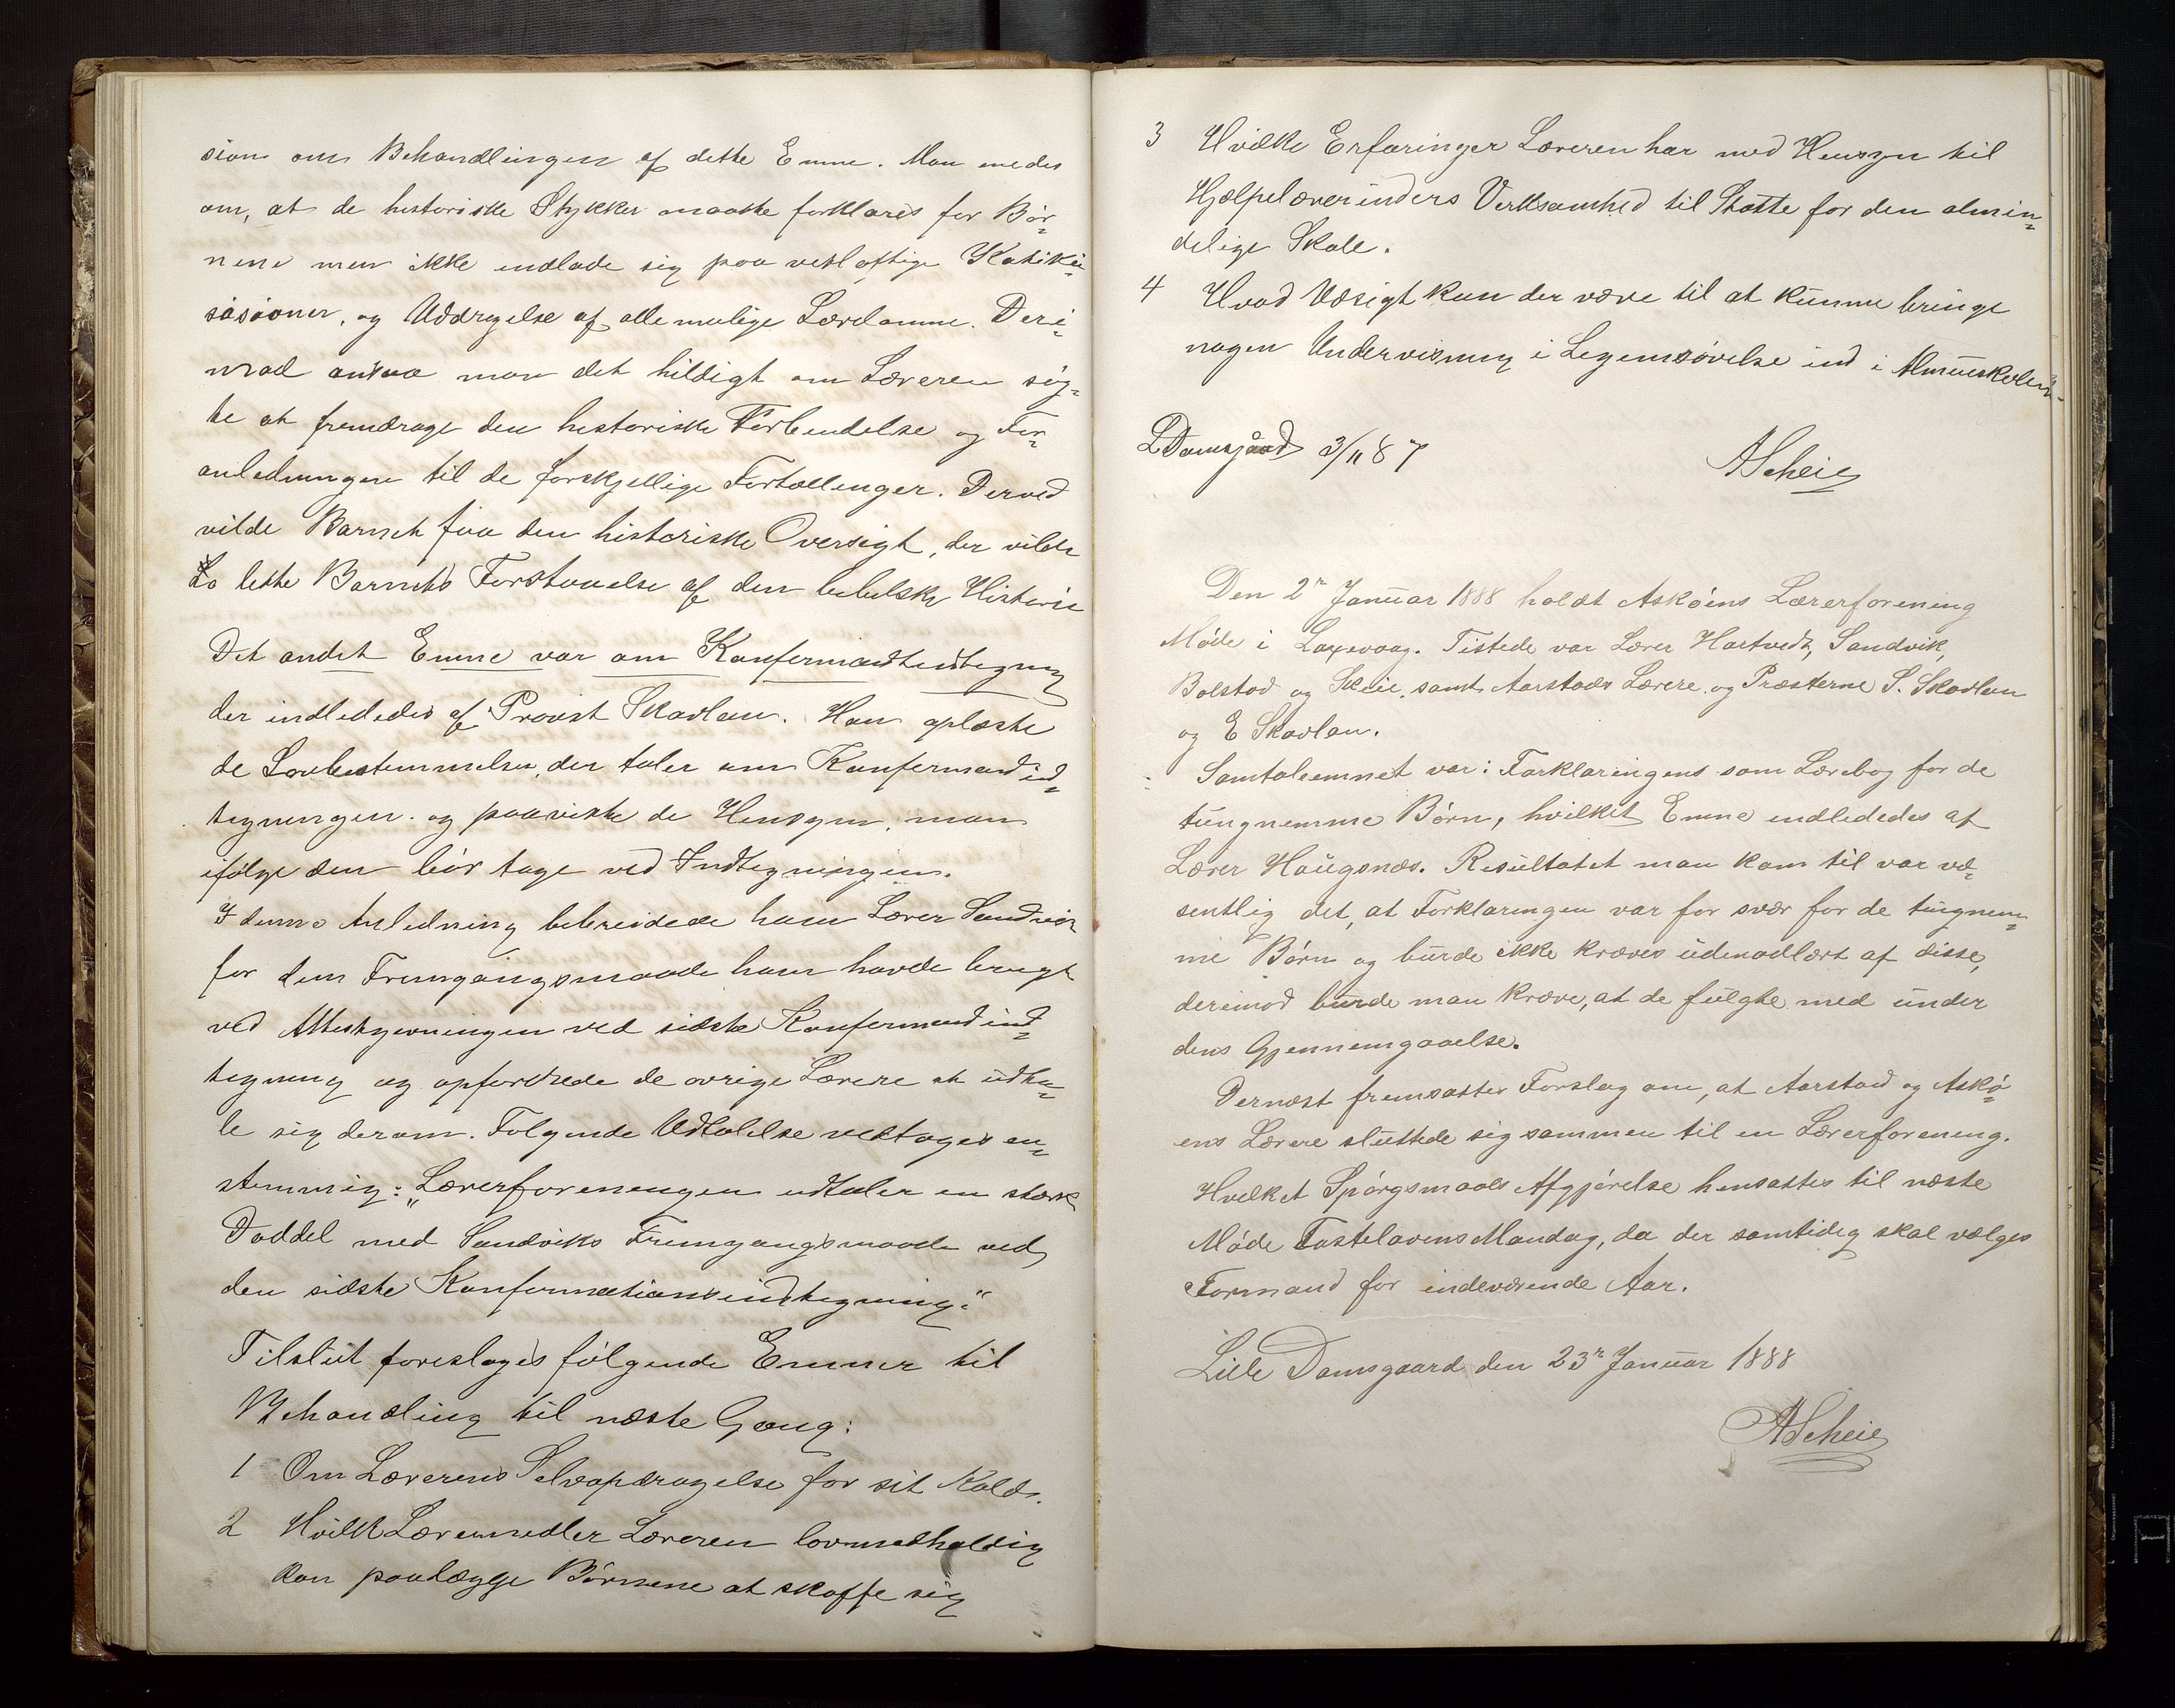 sion om Behandlingen af dette Emne. Man enedes
om, at de historiske Stykker maatte forklares for Bør-
nene men ikke indlade sig paa vitløftige Kateki-
sasioner, og Uddragelse af alle mulige Lærdomme. Deri-
mod ansaa man det heldigt om Læreren søg-
te at fremdrage den historiske Forbindelse og For-
anledningen til de forskjellige Fortællinger. Derved
vilde Barnet faa den historiske Oversigt, der vilde
lette Barnets Forstaaelse af den bibelske Historie
Det andet Emne var om Konfirmantindtegning
der indlededes af Provst Skavlan. Han oplæste
de Lovbestemmelser, der taler om Konfirmandind-
tegningen og paaviste de Hensyn, man
ifølge den bør tage ved Indtegningen.
I denne Anledning bebreidede han Lærer Sandvik
for den Fremgangsmaade han havde brugt
ved Attestgivningen ved sidste Konfirmandind-
tegning og opfordrede de øvrige Lærere at udta-
le sig derom. Følgende Udtalelse vedtoges en-
stemmig: „Lærerforeningen udtaler en stærk
Daddel med Sandviks Fremgangsmaade ved
den sidste Konfirmationsindtegning."
Tilslut foresloges følgende Emner til
Behandling til næste Gang:
1 Om Lærerens Selvopdragelse for sit Kald.
2 Hvilke Læremidler Læreren lovmedholdig
kan paalægge Børnene at skaffe sig
3 Hvilke Erfaringer Læreren har med Hensyn til
Hjælpelærerinders Virksomhed til Støtte for den almin-
delige Skole.
4 Hvad Udsigt kan der være til at kunne bringe
nogen Undervisning i Legemsøvelse ind i Almueskolen.
L Damsgaard 3/11 87
AScheie
Den 2n Januar 1888 holdt Askøens Lærerforening
Møde i Laxevaag. Tilstede var Lærer Hartvedt, Sandvik,
Bolstad og Skeie, samt Aarstads Lærere og Præsterne S. Skavlan
og E Skavlan.
Samtaleemnet var: Forklaringens som Lærebog for de
tungnemme Børn, hvilket Emne indlededes af
Lærer Haugsnæs. Resultatet man kom til var væ-
sentlig det, at Forklaringen var for svær for de tungnem-
me Børn og burde ikke kræves udenadlært af disse,
derimod burde man kræve, at de fulgte med under
dens Gjennemgaaelse.
Dernæst fremsattes Forslag om, at Aarstad og Askø-
ens Lærere sluttede sig sammen til en Lærerforening.
Hvilket Spørgsmaals Afgjørelse hensattes til næste
Møde Fastelavens Mandag, da der samtidig skal vælges
Formand for indeværende Aar.
Lille Damsgaard den 23n Januar 1888
AScheie